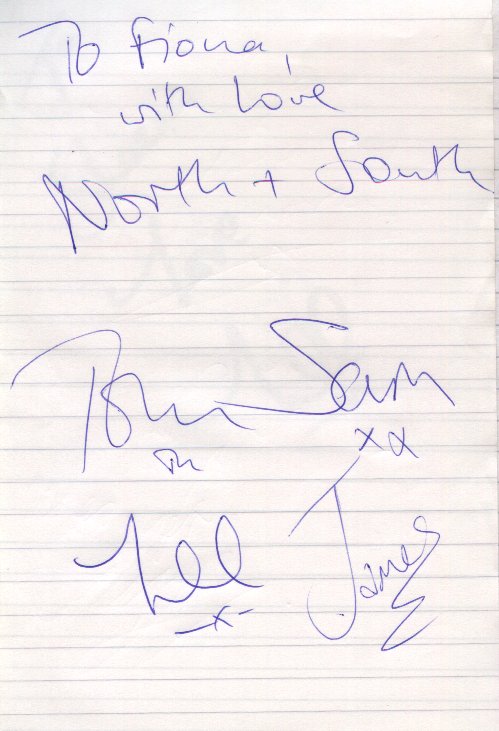 To Fiona,
with love
North + South
Tom Sam
xx
Lee James
x